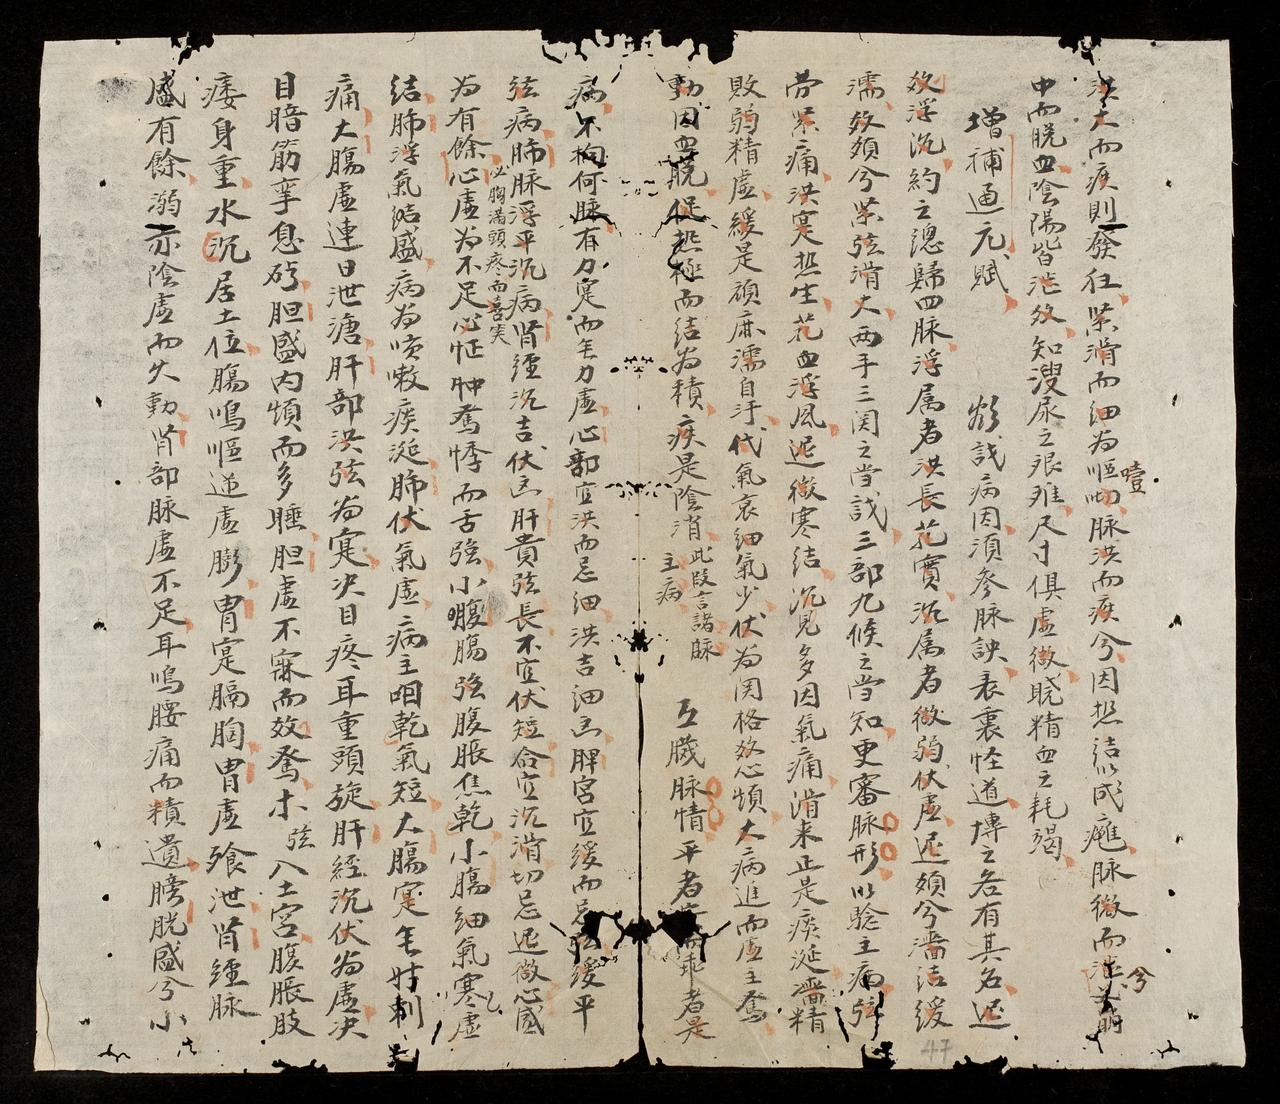 洪大而疾則發狂緊滑而細為嘔噎脉洪而疾兮因𤍠結以成癰脉微而澁兮崩
中而脱血陰陽皆澁效知溲尿之艰难尺寸俱虚微晓精血之耗竭
增補通元賦 欲識病因湏参脉訣表裏怪道博之各有其名迟
效浮沉約之總歸四脉浮属者洪長芤實沉属者微弱伏虚迟頻兮濇結緩
濡效頻兮緊弦滑大两手三関之當識三部九候之當知更審脉形以驗主病弦
劳緊痛洪寔𤍠生芤血浮風迟微寒結沉見多因氣痛滑来正是痰涎濇精
敗弱精虚緩是頑麻濡自汗代氣衰細氣少伏為関格效心煩大病進而虚主驚
動因血脱促𤍠極而結为積疾是陰消
此段言諸脉
主病
五臟脉情平者 而乖者是
病不拘何脉有力寔而无力虚心部宜洪而忌細洪吉細凶脾宮宜緩而忌弦緩平
弦病肺脉浮平沉病肾經沉吉伏凶肝貴弦長不宜伏短命宜沉滑切忌迟微心盛
必胸滿頭疼而喜笑
为有餘心虚为不足心怔忡驚悸而舌強小腹腸強腹脹焦乾小腸細氣寒虚
結肺浮氣結盛病为咳嗽痰涎肺伏氣虚病主咽乾氣短大腸寔无时刺
痛大腸虚連日泄溏肝部洪弦为寔决目疼耳重頭旋肝經沉伏为虚决
目暗筋挛息矿胆盛内煩而多睡胆虚不寐而效驚木弦入土宮腹脹肢
痿身重水沉居土位腸鳴嘔逆虚膨胃寔膈胸胃虚飧泄肾經脉
盛有餘溺赤陰虚而火動肾部脉虚不足耳鳴腰痛而精遺膀胱盛兮小
47